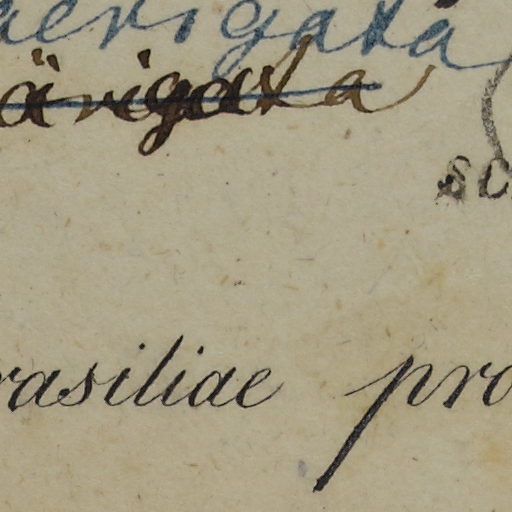 aevigata
ärigata
sc
rasiliae pro